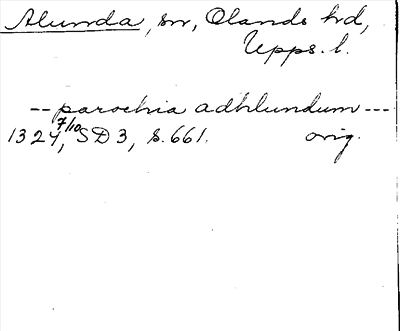 Alunda, sn, Olands hd,
Upps. l.
-- parochia adhlundum ---
1324 7/10, SD 3, s. 661. orig.